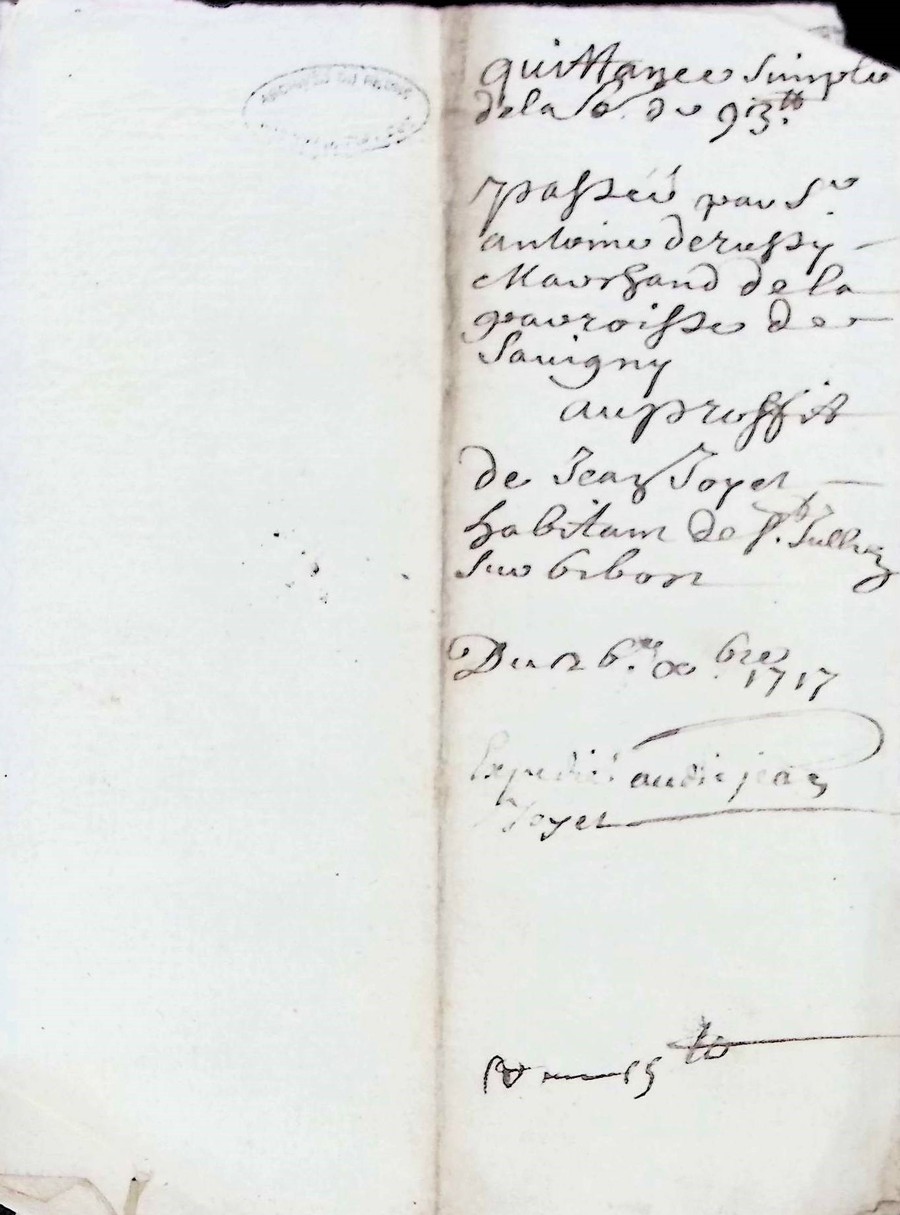 ARCHIVES DU RHONE
quittance simple
de la So. de 93.tt
passée par Sr.
antoine derussy
Marchand de la
parroisse de
Savigny
au proffit
de Jean Joyet
habitant de St. Jullien
sur bibost
Du 26.me xbre 1717
Expedié audit jean
Joyet